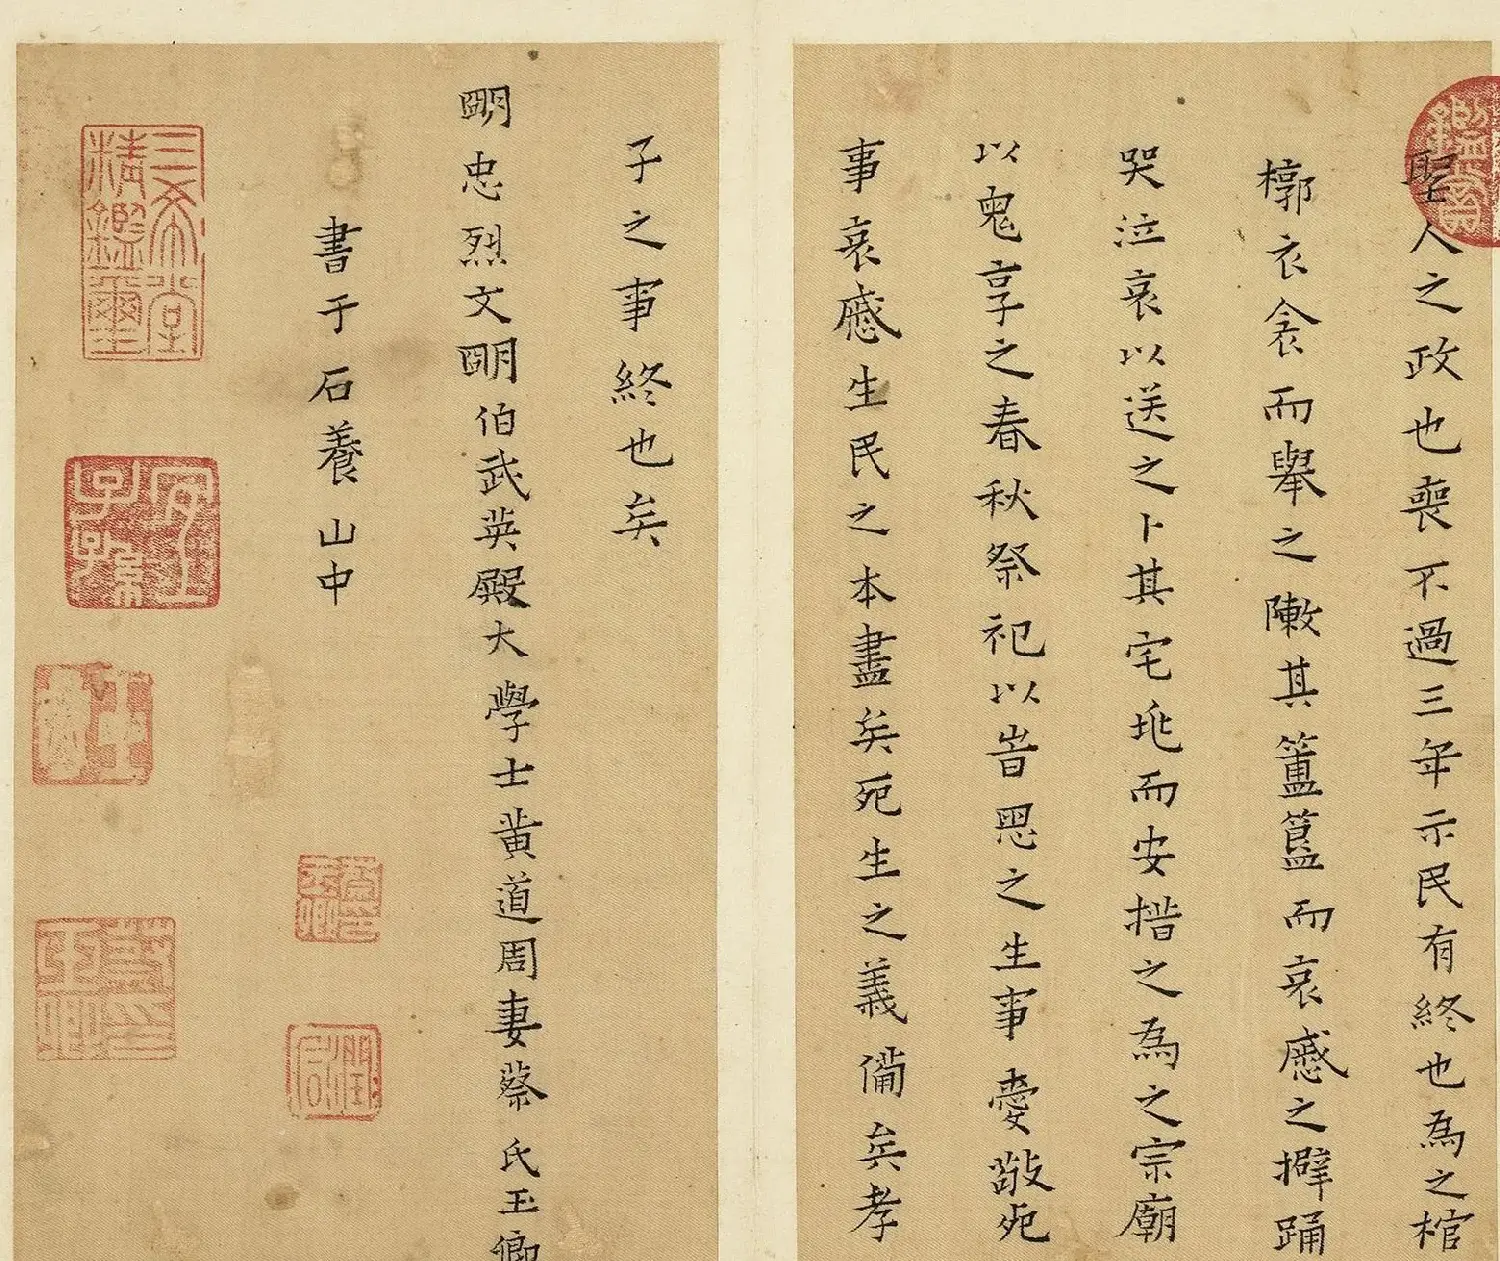 聖人之政也喪不過三年示民有終也為之棺
槨衣衾而舉之陳其簠簋而哀慼之擗踊
哭泣哀以送之卜其宅兆而安措之為之宗廟
以鬼享之春秋祭祀以時思之生事愛敬死
事哀慼生民之本盡矣死生之義備矣孝
子之事終也矣
明忠烈文明伯武英殿大學士黃道周妻蔡氏玉卿
書于石養山中
三希堂
精鑑璽
宜
子孫
蔡氏
玉卿